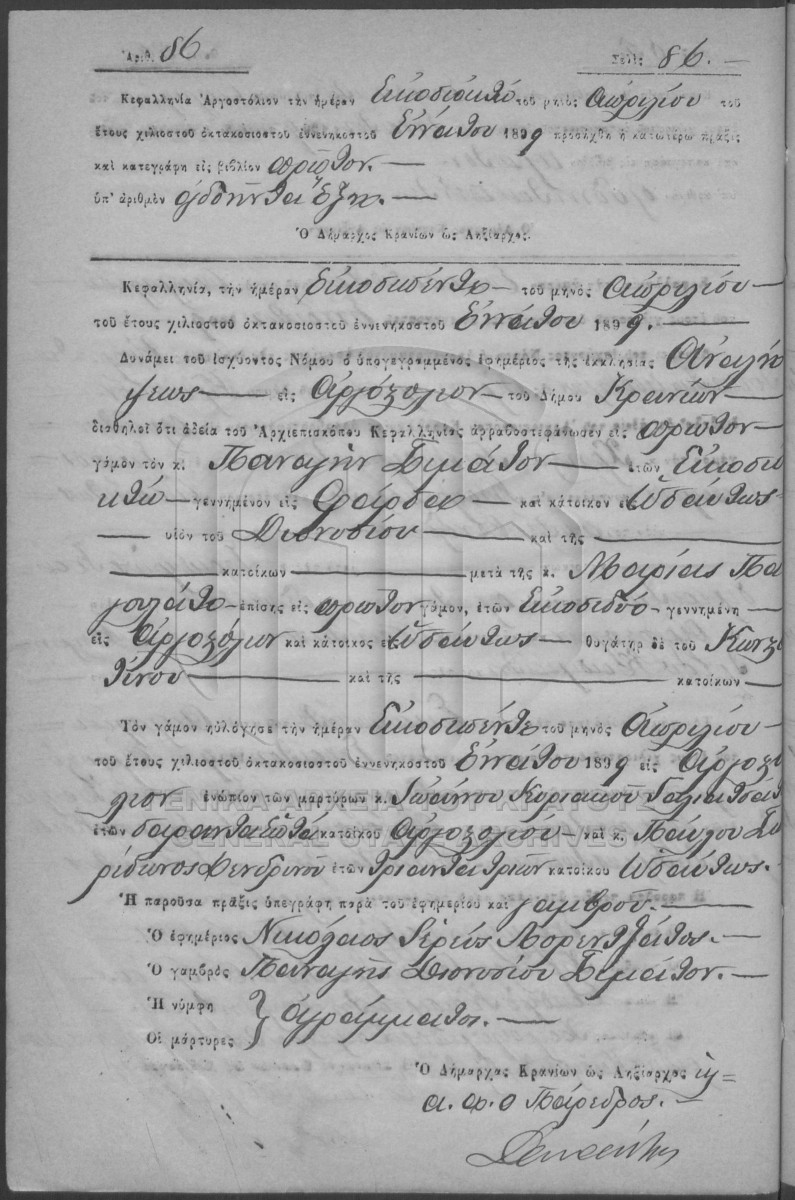 Ἀριθ. 86 Σελὶς 86.
Κεφαλληνία Ἀργοστόλιον τὴν ἡμέραν Εἰκοσιοκτὼ τοῦ μηνὸς Ἀπριλίου τοῦ
ἔτους χιλιοστοῦ ὀκτακοσιοστοῦ ἐννενηκοστοῦ Ἐννάτου 1899 προσήχθη ἡ κατωτέρω πρᾶξις
καὶ κατεγράφη εἰς βιβλίον πρῶτον.
ὑπ' ἀριθμὸν ὀγδοῆντα ἕξη.
Ὁ Δήμαρχος Κρανίων ὡς Ληξίαρχος.
Κεφαλληνία, τὴν ἡμέραν Εἰκοσιπέντε τοῦ μηνὸς Ἀπριλίου
τοῦ ἔτους χιλιοστοῦ ὀκτακοσιοστοῦ ἐννενηκοστοῦ Ἐννάτου 1899.
Δυνάμει τοῦ ἰσχύοντος Νόμου ὁ ὑπογεγραμμένος ἐφημέριος τῆς ἐκκλησίας Ἀναλή
ψεως εἰς Ἀργοστόλιον τοῦ Δήμου Κρανίων
διαθηλοῖ ὅτι ἀδεία τοῦ Ἀρχιεπισκόπου Κεφαλληνίας ἀρραβοστεφάνωσεν εἰς πρῶτον
γάμον τὸν κ. Παναγὴν Σιμᾶτον ἐτῶν Εἰκοσιο
κτὼ γεννημένον εἰς Φάρσα καὶ κάτοικον εἰς Ὡσαύτως
υἱὸν τοῦ Διονυσίου καὶ τῆς
κατοίκων μετὰ τῆς κ. Μαρίας Πα
γουλάτο ἐπίσης εἰς πρῶτον γάμον, ἐτῶν Εἰκοσιδύο γεννημένη
εἰς Ἀργοστόλιον καὶ κάτοικος εἰς Ὡσαύτως θυγάτηρ δὲ τοῦ Κωνστ
τίνου καὶ τῆς κατοίκων
Τὸν γάμον ηὐλόγησε τὴν ἡμέραν Εἰκοσιπέντε τοῦ μηνὸς Ἀπριλίου
τοῦ ἔτους χιλιοστοῦ ὀκτακοσιοστοῦ ἐννενηκοστοῦ Ἐννάτου 1899 εἰς Ἀργοστό
λιον ἐνώπιον τῶν μαρτύρων κ. Ἰωάννου Κυριακοῦ Γαλιατσάτ
ἐτῶν σαράντα ἑπτὰ κατοίκου Ἀργοστολίου καὶ κ. Παύλου Σπ
ρίδωνος Δενδρινοῦ ἐτῶν τριαντατριῶν κατοίκου Ὡσαύτως.
Ἡ παροῦσα πρᾶξις ὑπεγράφη παρὰ τοῦ ἐφημερίου καὶ γαμβροῦ.
Ὁ ἐφημέριος Νικόλαος Ἱερεὺς Λορεντζάτος.
Ὁ γαμβρὸς Παναγῆς Διονυσίου Σιμάτον.
Ἡ νύμφη
Οἱ μάρτυρες } ἀγράμματοι.
Ὁ Δήμαρχος Κρανίων ὡς Ληξίαρχος
α. α. ο Πάρεδρος.
ΓΕΝΙΚΑ ΑΡΧΕΙΑ ΤΟΥ ΚΡΑΤΟΥΣ
GENERAL STATE ARCHIVES